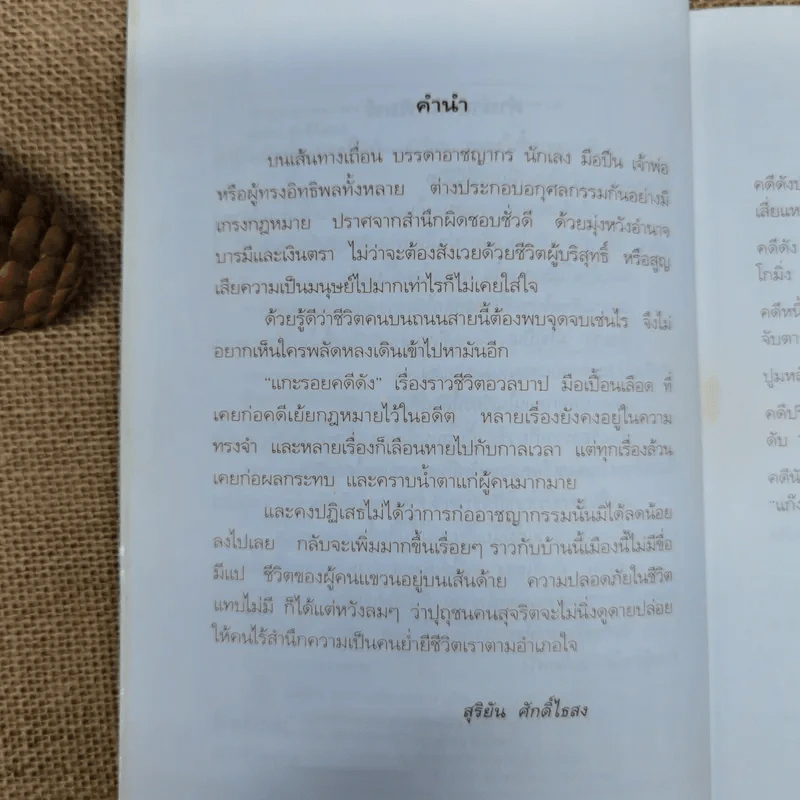 คำนำ
บนเส้นทางเถื่อน บรรดาอาชญากร นักเลง มือปืน เจ้าพ่อ
หรือผู้ทรงอิทธิพลทั้งหลาย ต่างประกอบอกุศลกรรมกันอย่างมี
เกรงกฎหมาย ปราศจากสำนึกผิดชอบชั่วดี ด้วยมุ่งหวังอำนาจ
บารมีและเงินตรา ไม่ว่าจะต้องสังเวยด้วยชีวิตผู้บริสุทธิ์ หรือสูญ
เสียความเป็นมนุษย์ไปมากเท่าไรก็ไม่เคยใส่ใจ
ด้วยรู้ดีว่าชีวิตคนบนถนนสายนี้ต้องพบจุดจบเช่นไร จึงไม่
อยากเห็นใครพลัดหลงเดินเข้าไปหามันอีก
"แกะรอยคดีดัง" เรื่องราวชีวิตอวลบาป มือเปื้อนเลือด ที่
เคยก่อคดีเย้ยกฎหมายไว้ในอดีต หลายเรื่องยังคงอยู่ในความ
ทรงจำ และหลายเรื่องก็เลือนหายไปกับกาลเวลา แต่ทุกเรื่องล้วน
เคยก่อผลกระทบ และคราบน้ำตาแก่ผู้คนมากมาย
และคงปฏิเสธไม่ได้ว่าการก่ออาชญากรรมนั้นมิได้ลดน้อย
ลงไปเลย กลับจะเพิ่มมากขึ้นเรื่อยๆ ราวกับบ้านนี้เมืองนี้ไม่มีขื่อ
มีแป ชีวิตของผู้คนแขวนอยู่บนเส้นด้าย ความปลอดภัยในชีวิต
แทบไม่มี ก็ได้แต่หวังลมๆ ว่าปุถุชนคนสุจริตจะไม่นิ่งดูดายปล่อย
ให้คนไร้สำนึกความเป็นคนย่ำยีชีวิตเราตามอำเภอใจ
สุริยัน ศักดิ์ไธสง
คดีดังป
เสี่ยแห
คดีดัง
โกมิ่ง
คดีหนี้
จับตา
ปูมหลั
คดีปริ
ดับ
คดีนั
"แก๊ง